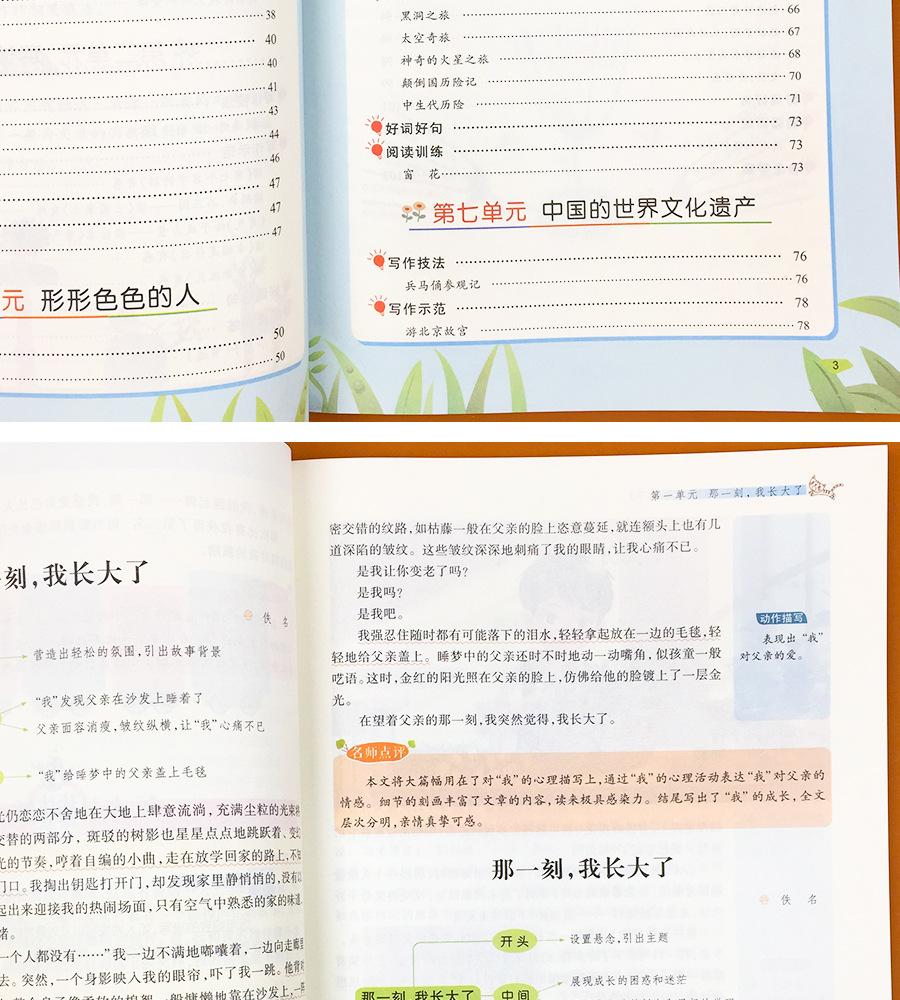 38
40
40
41
43
44
46
47
47
47
元 形形色色的人
50
50
66
黑洞之旅 67
太空奇旅 68
神奇的火星之旅 70
颠倒国历险记 71
中生代历险 73
好词好句 73
阅读训练 73
窗 花
第七单元 中国的世界文化遗产
写作技法 76
兵马俑参观记 76
写作示范 78
游北京故宫 78
3
一刻,我长大了
佚 名
营造出轻松的氛围,引出故事背景
“我”发现父亲在沙发上睡着了
父亲面容消瘦,皱纹纵横,让“我”心痛不已
“我”给睡梦中的父亲盖上毛毯
光仍恋恋不舍地在大地上肆意流淌,充满尘粒的光束将
交替的两部分,斑驳的树影也星星点点地跳跃着、变幻
光的节奏,哼着自编的小曲,走在放学回家的路上,不知
门口。我掏出钥匙打开门,却发现家里静悄悄的,没有以
起出来迎接我的热闹场面,只有空气中熟悉的家的味道
绪。
一个人都没有……”我一边不满地嘟囔着,一边向走廊里
去。突然,一个身影映入我的眼帘,吓了我一跳。他背对
般慵懒地靠在沙发上,一阵
第一单元 那一刻,我长大了
密交错的纹路,如枯藤一般在父亲的脸上恣意蔓延,就连额头上也有几
道深陷的皱纹。这些皱纹深深地刺痛了我的眼睛,让我心痛不已。
是我让你变老了吗?
是我吗?
是我吧。
我强忍住随时都有可能落下的泪水,轻轻拿起放在一边的毛毯,轻
轻地给父亲盖上。睡梦中的父亲还时不时地动一动嘴角,似孩童一般
呓语。这时,金红的阳光照在父亲的脸上,仿佛给他的脸镀上了一层金
光。
在望着父亲的那一刻,我突然觉得,我长大了。
动作描写
表现出“我”
对父亲的爱。
名师点评
本文将大篇幅用在了对“我”的心理描写上,通过“我”的心理活动表达“我”对父亲的
情感。细节的刻画丰富了文章的内容,读来极具感染力。结尾写出了“我”的成长,全文
层次分明,亲情真挚可感。
那一刻,我长大了
佚 名
开头 设置悬念,引出主题
展现成长的困惑和迷茫
那一刻,我长大了 中间